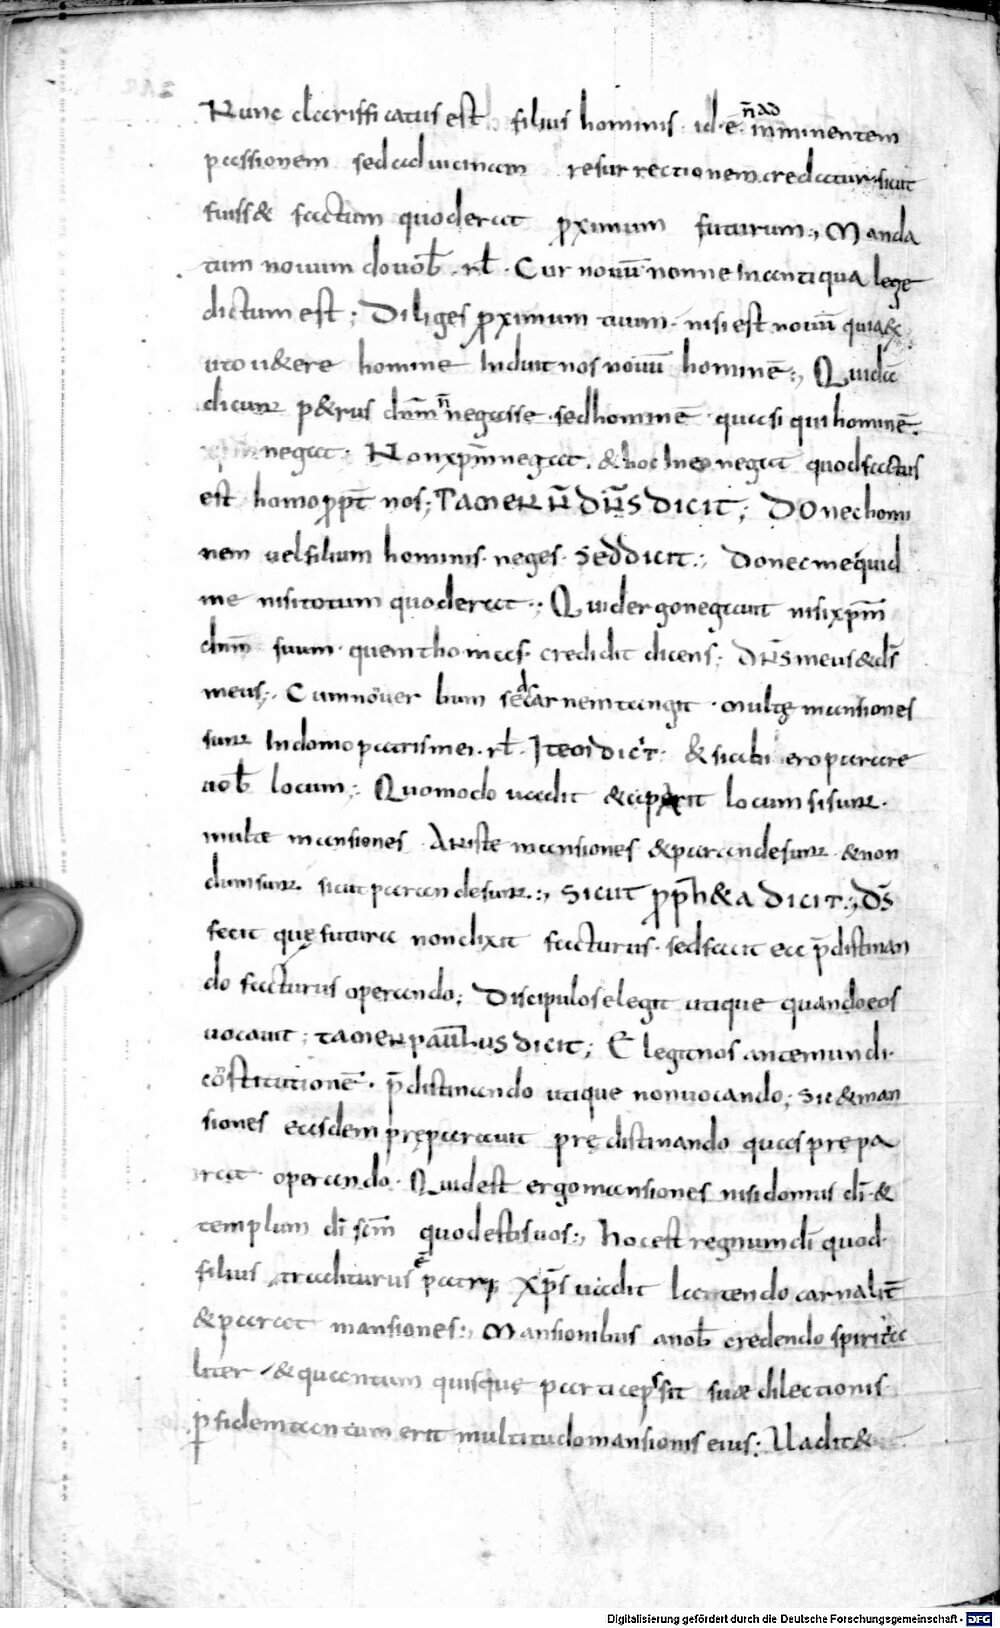 Nunc clariffi catus est filius hominis · id · ē · n̄ ad inminentem
passionem sed ad uicinam resurrectionem credatur · sicut
fuiss& factum quod erat ꝓximum futurum ·, Manda
tum nouum do uob̄ · rl̄ · Cur nouū nonne In antiqua lege
dictum est ; Diliges ꝓximum tuum · nisi est nouū quia &
uto u&ere homine Induit nos nouū hominē ·, Quidā
dicunt p&rus dnm̄ n̄ negasse · sed hominē · quasi qui hominē ·
negat · Non xpm̄ negat · & hoc In eo negat quod factus
est homo ꝓpt̄ nos ; TAMEN N̄ DN̄S DICIT ; DOnec homi
nem uel filium hominis · neges · SED DICIT ·, Donec me quid
me nisi totum quod erat ·, Quid ergo negauit nisi xpm̄
dnm̄ suum · quem thomas · credidit dicens ; DN̄S meus & ds̄
meus ; Cum nouer bum sed carnem tangit · multę mansiones
sunt In domo patris mei · rl̄ · ITEM DICIT · & si abi ero parare
uob̄ locum ; Quomodo uadit & aparit locum si sunt ·
multae mansiones An iste mansiones & parande sunt · & non
dum sunt · sicut parande sunt ·, SICUT ꝓph&a DICIT ·, Ds̄
fecit quę futura non dixit facturus · sed facit ea p̄distinan
do facturus operando ; Discipulos elegit utique quando eos
uocauit ; TAMEN PAULUS DICIT ; Elegit nos ante mundi ·
con̄stitutionē · p̄distinando utique non uocando ; Sic & man
siones easdem pręparauit prędistinando quas prepa
rat · operando · Quid est ergo mansiones nisi domus dī · &
templum dī scm̄ quod estis uos ·, Hoc est regnum dī quod ·
filius traditurus ē patri Xps̄ uadit latendo carnalit̄
& parat mansiones ·, Mansionibus a nob̄ credendo spirita
liter & quantum quisque particeps sit suae dilectionis ·
ꝑ fidem tantum erit multitudo mansionis eius ; Uadit &
Digitalisierung gefördert durch die Deutsche Forschungsgemeinschaft - DFG